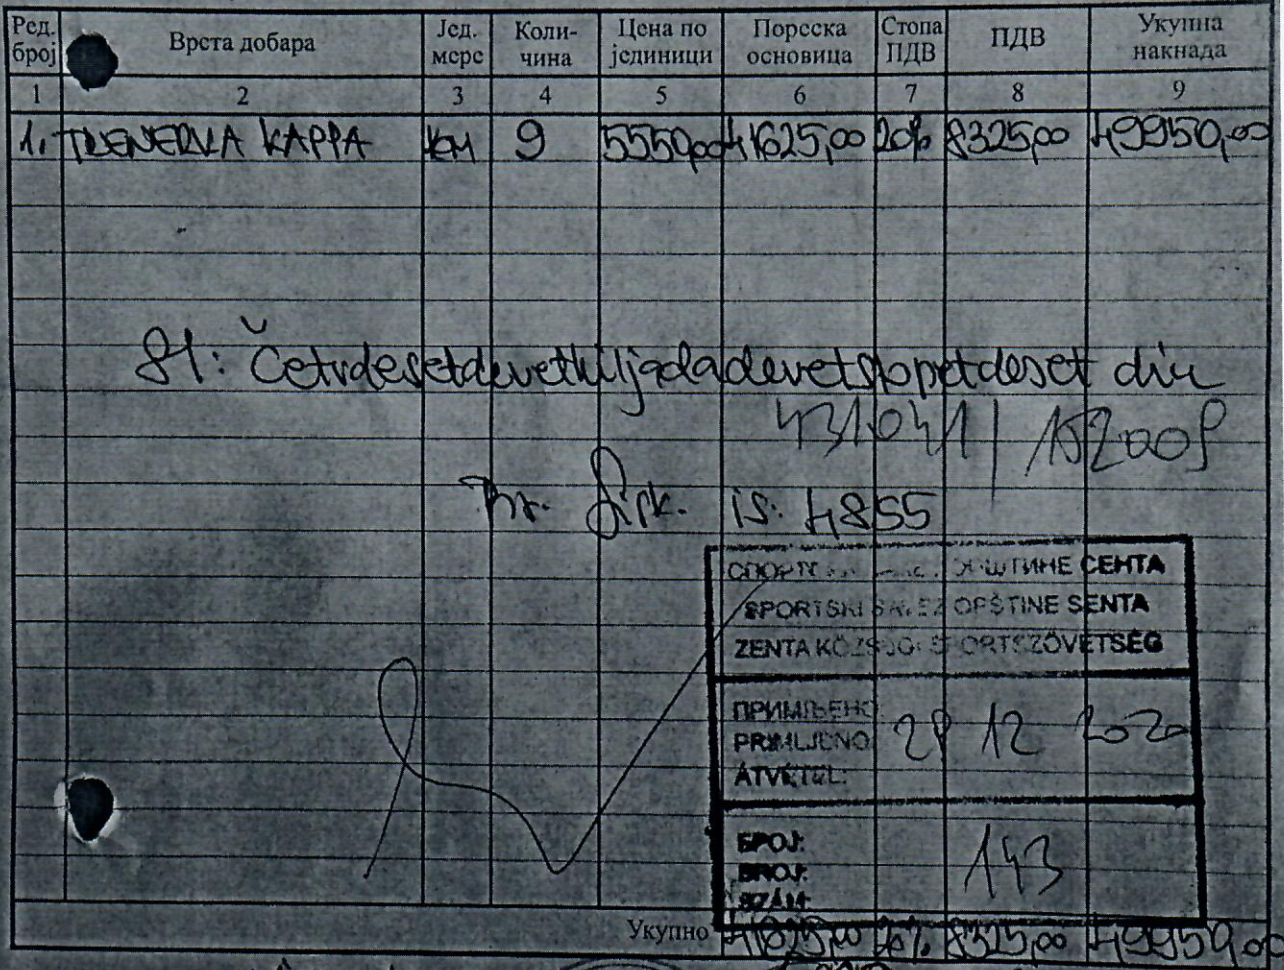 Ред. број Врста добара Јед. мере Коли-чина Цена по јединици Пореска основица Стопа ПДВ ПДВ Укупна накнада
1 2 3 4 5 6 7 8 9
1. TRENERKA KAPPA KM 9 5550,00 41625,00 20% 8325,00 49950,00
Sl: Četrdesetdevethiljadadevetstopetdeset din
Br. fisk. is: 4855
ОПШТИНЕ СЕНТА
SPORTSKI SAVEZ OPŠTINE SENTA
ZENTA KÖZSÉGI SPORTSZÖVETSÉG
ПРИМЉЕНО
PRIMLJENO 28 12 2020
ÁTVÉTEL:
БРОЈ:
BROJ: 143
SZÁM:
Укупно 41625,00 20% 8325,00 49950,00